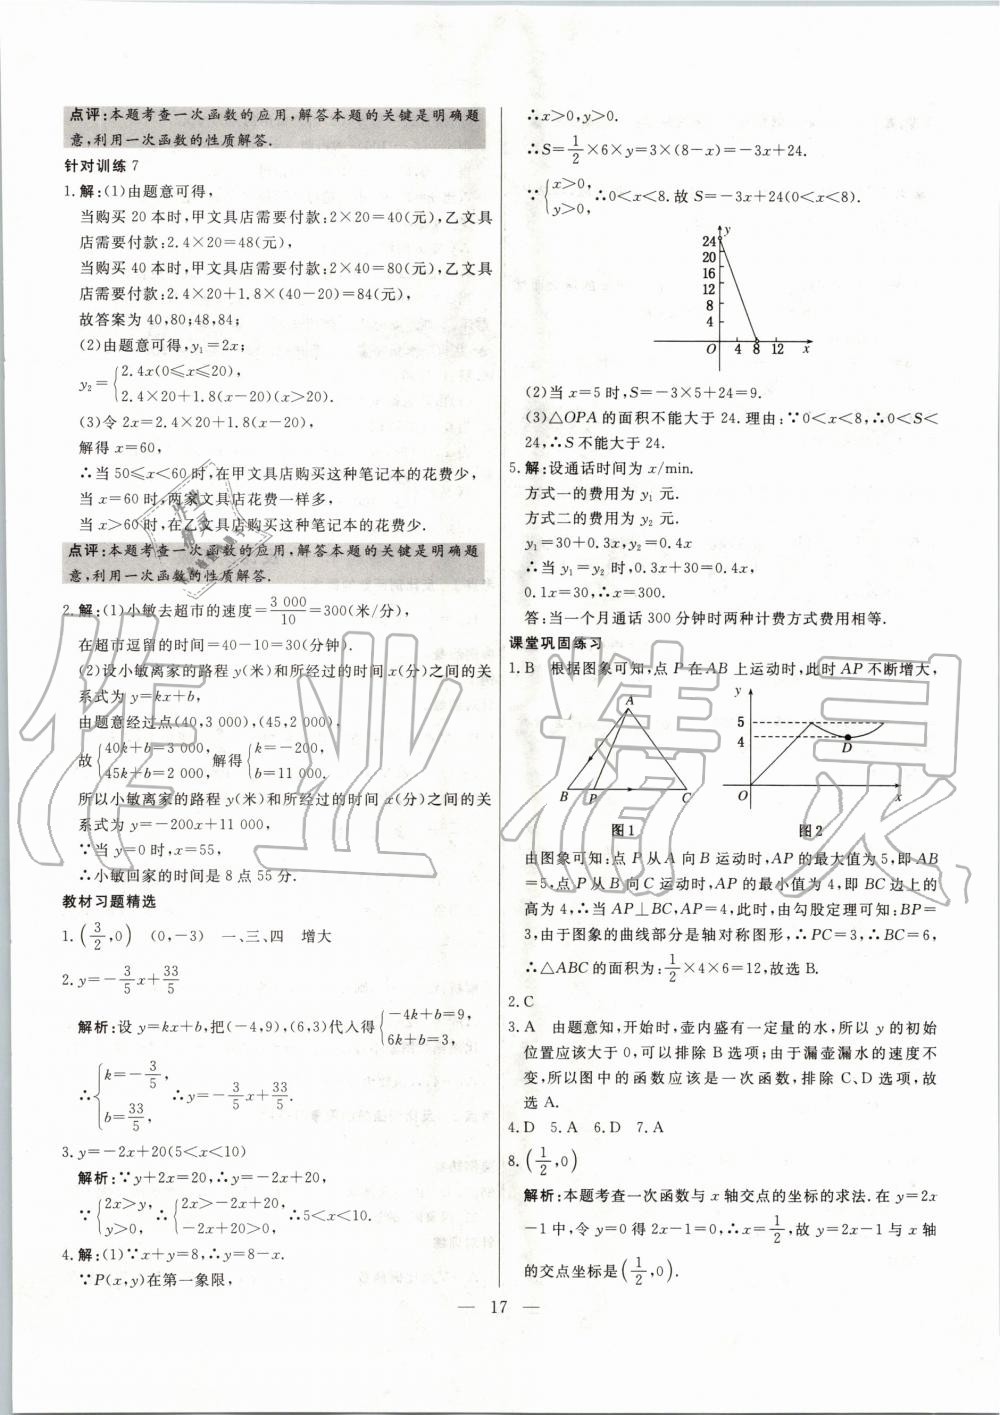 点评:本题考查一次函数的应用,解答本题的关键是明确题
意,利用一次函数的性质解答.
针对训练7
1.解:(1)由题意可得,
当购买20本时,甲文具店需要付款:2×20=40(元),乙文具
店需要付款:2.4×20=48(元),
当购买40本时,甲文具店需要付款:2×40=80(元),乙文具
店需要付款:2.4×20+1.8×(40-20)=84(元),
故答案为40,80;48,84;
(2)由题意可得,y₁=2x;
y₂={2.4x(0≤x≤20),
2.4×20+1.8(x-20)(x>20).
(3)令2x=2.4×20+1.8(x-20),
解得x=60,
∴当50≤x<60时,在甲文具店购买这种笔记本的花费少,
当x=60时,两家文具店花费一样多,
当x>60时,在乙文具店购买这种笔记本的花费少.
点评:本题考查一次函数的应用,解答本题的关键是明确题
意,利用一次函数的性质解答.
2.解:(1)小敏去超市的速度=3 000/10=300(米/分),
在超市逗留的时间=40-10=30(分钟).
(2)设小敏离家的路程y(米)和所经过的时间x(分)之间的关
系式为y=kx+b,
由题意经过点(40,3 000),(45,2 000),
故{40k+b=3 000, 45k+b=2 000, 解得{k=-200, b=11 000.
所以小敏离家的路程y(米)和所经过的时间x(分)之间的关
系式为y=-200x+11 000,
∵当y=0时,x=55,
∴小敏回家的时间是8点55分.
教材习题精选
1.(3/2,0) (0,-3) 一、三、四 增大
2.y=-3/5x+33/5
解析:设y=kx+b,把(-4,9),(6,3)代入得{-4k+b=9, 6k+b=3,
∴{k=-3/5, b=33/5, ∴y=-3/5x+33/5.
3.y=-2x+20(5<x<10)
解析:∵y+2x=20,∴y=-2x+20,
∵{2x>y, y>0, ∴{2x>-2x+20, -2x+20>0, ∴5<x<10.
4.解:(1)∵x+y=8,∴y=8-x.
∵P(x,y)在第一象限,
∴x>0,y>0.
∴S=1/2×6×y=3×(8-x)=-3x+24.
∵{x>0, y>0, ∴0<x<8.故S=-3x+24(0<x<8).
y
24
20
16
12
8
4
O 4 8 12 x
(2)当x=5时,S=-3×5+24=9.
(3)△OPA的面积不能大于24.理由:∵0<x<8,∴0<S<
24,∴S不能大于24.
5.解:设通话时间为x/min.
方式一的费用为y₁元.
方式二的费用为y₂元.
y₁=30+0.3x,y₂=0.4x
∴当y₁=y₂时,0.3x+30=0.4x,
0.1x=30,∴x=300.
答:当一个月通话300分钟时两种计费方式费用相等.
课堂巩固练习
1.B 根据图象可知,点P在AB上运动时,此时AP不断增大,
A
B P C
图1
y
5
4
D
O x
图2
由图象可知:点P从A向B运动时,AP的最大值为5,即AB
=5,点P从B向C运动时,AP的最小值为4,即BC边上的
高为4,∴当AP⊥BC,AP=4,此时,由勾股定理可知:BP=
3,由于图象的曲线部分是轴对称图形,∴PC=3,∴BC=6,
∴△ABC的面积为:1/2×4×6=12,故选B.
2.C
3.A 由题意知,开始时,壶内盛有一定量的水,所以y的初始
位置应该大于0,可以排除B选项;由于漏壶漏水的速度不
变,所以图中的函数应该是一次函数,排除C、D选项,故
选A.
4.D 5.A 6.D 7.A
8.(1/2,0)
解析:本题考查一次函数与x轴交点的坐标的求法.在y=2x
-1中,令y=0得2x-1=0,∴x=1/2,故y=2x-1与x轴
的交点坐标是(1/2,0).
— 17 —
作业精灵